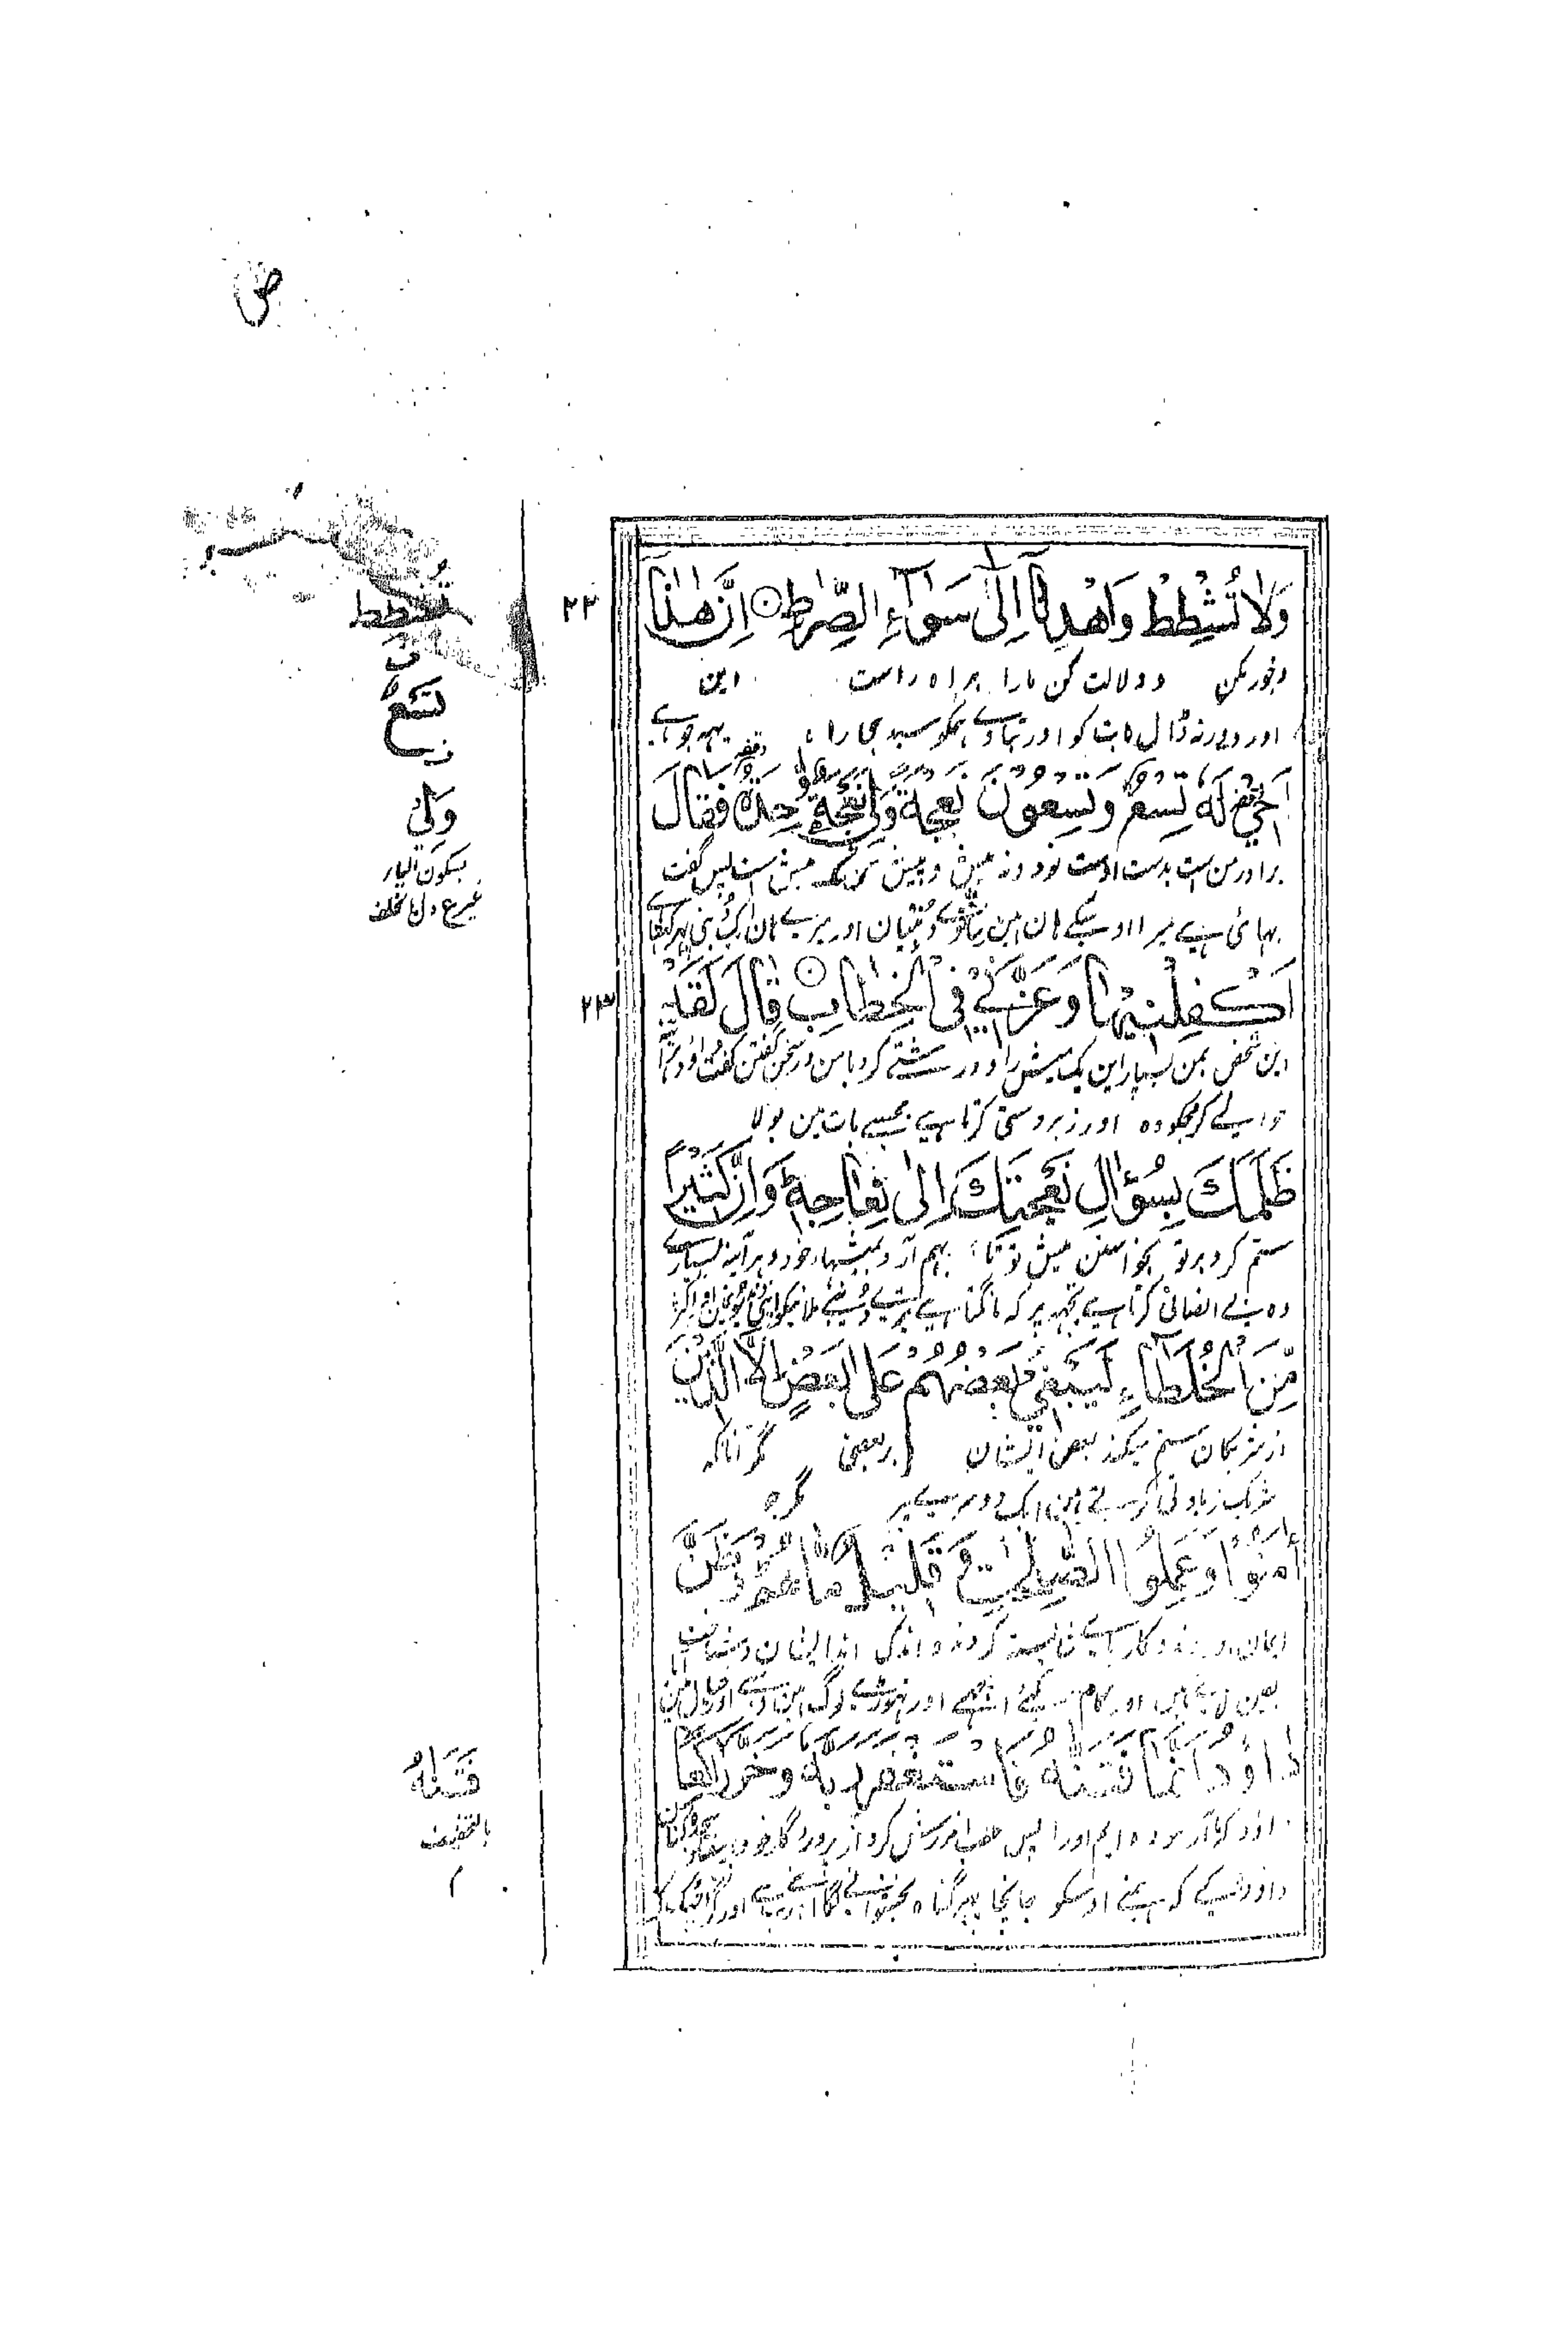 ص
وَلَا تُشْطِطْ وَاهْدِنَآ اِلٰى سَوَآءِ الصِّرَاطِ ۝ اِنَّ هٰذَآ
۲۲
وجور مکن و دلالت کن مارا براه راست این
اور دور نہ ڈال بات کو اور بتادے ہمکو سیدھی راہ یہہ جو ہے
اَخِيْ لَهٗ تِسْعٌ وَّتِسْعُوْنَ نَعْجَةً وَّلِيَ نَعْجَةٌ وَّاحِدَةٌ فَقَالَ
برادر من است بدست اوست نود و نه میش و پیش من یک میش است پس گفت
بہائی ہے میرا اوسکے ہان ہین ننانوے دُنبیان اور میرے ہان ایک دُنبی پہر کہتا ہے
اَكْفِلْنِيْهَا وَعَزَّنِيْ فِي الْخِطَابِ ۝ قَالَ لَقَدْ
۲۳
این شخص بمن بسپار این یک میش را و درشتے کرد با من در سخن گفتن گفت داؤد
حوالے کر مجکو وہ اور زبردستی کرتا ہے مجسے بات مین بولا
ظَلَمَكَ بِسُؤَالِ نَعْجَتِكَ اِلٰى نِعَاجِهٖ وَاِنَّ كَثِيْرًا
ستم کرد بر تو بخواستن میش تو تا بہم آرد بمیشہاء خود و ہر آینہ بسیارے
وہ بے انصافی کرتا ہے تجہہ پر کہ مانگتا ہے تیرے دُنبے ملانیکو اپنی دنبیون مین اور اکثر
مِّنَ الْخُلَطَآءِ لَيَبْغِيْ بَعْضُهُمْ عَلٰى بَعْضٍ اِلَّا الَّذِيْنَ
از شریکان ستم میکند بعض ایشان بر بعضی مگر آنانکہ
شریک زیادتی کرتے ہین ایک دوسرے پر مگر جو
اٰمَنُوْا وَعَمِلُوا الصّٰلِحٰتِ وَقَلِيْلٌ مَّا هُمْ وَظَنَّ
ایمان آوردند و کارہاے شایستہ کردند و اندکی اند ایشان و شناخت
یقین لائے ہین اور کام کیئے اچہے اور تہوڑے لوگ ہین ویسے اور خیال مین
دَاوٗدُ اَنَّمَا فَتَنّٰهُ فَاسْتَغْفَرَ رَبَّهٗ وَخَرَّ رَاكِعًا
داؤد کہ آزمودہ ایم اورا پس طلب آمرزش کرد از پروردگار خود
داؤد کے کہ ہمنے اوسکو جانچا پہر گناہ بخشوانے لگا اپنے رب سے اور گرا
تُشْطِطْ
تِسْعٌ
وَلِيْ
بسکون الیاء
فَتَنَاهُ
بالتخفیف